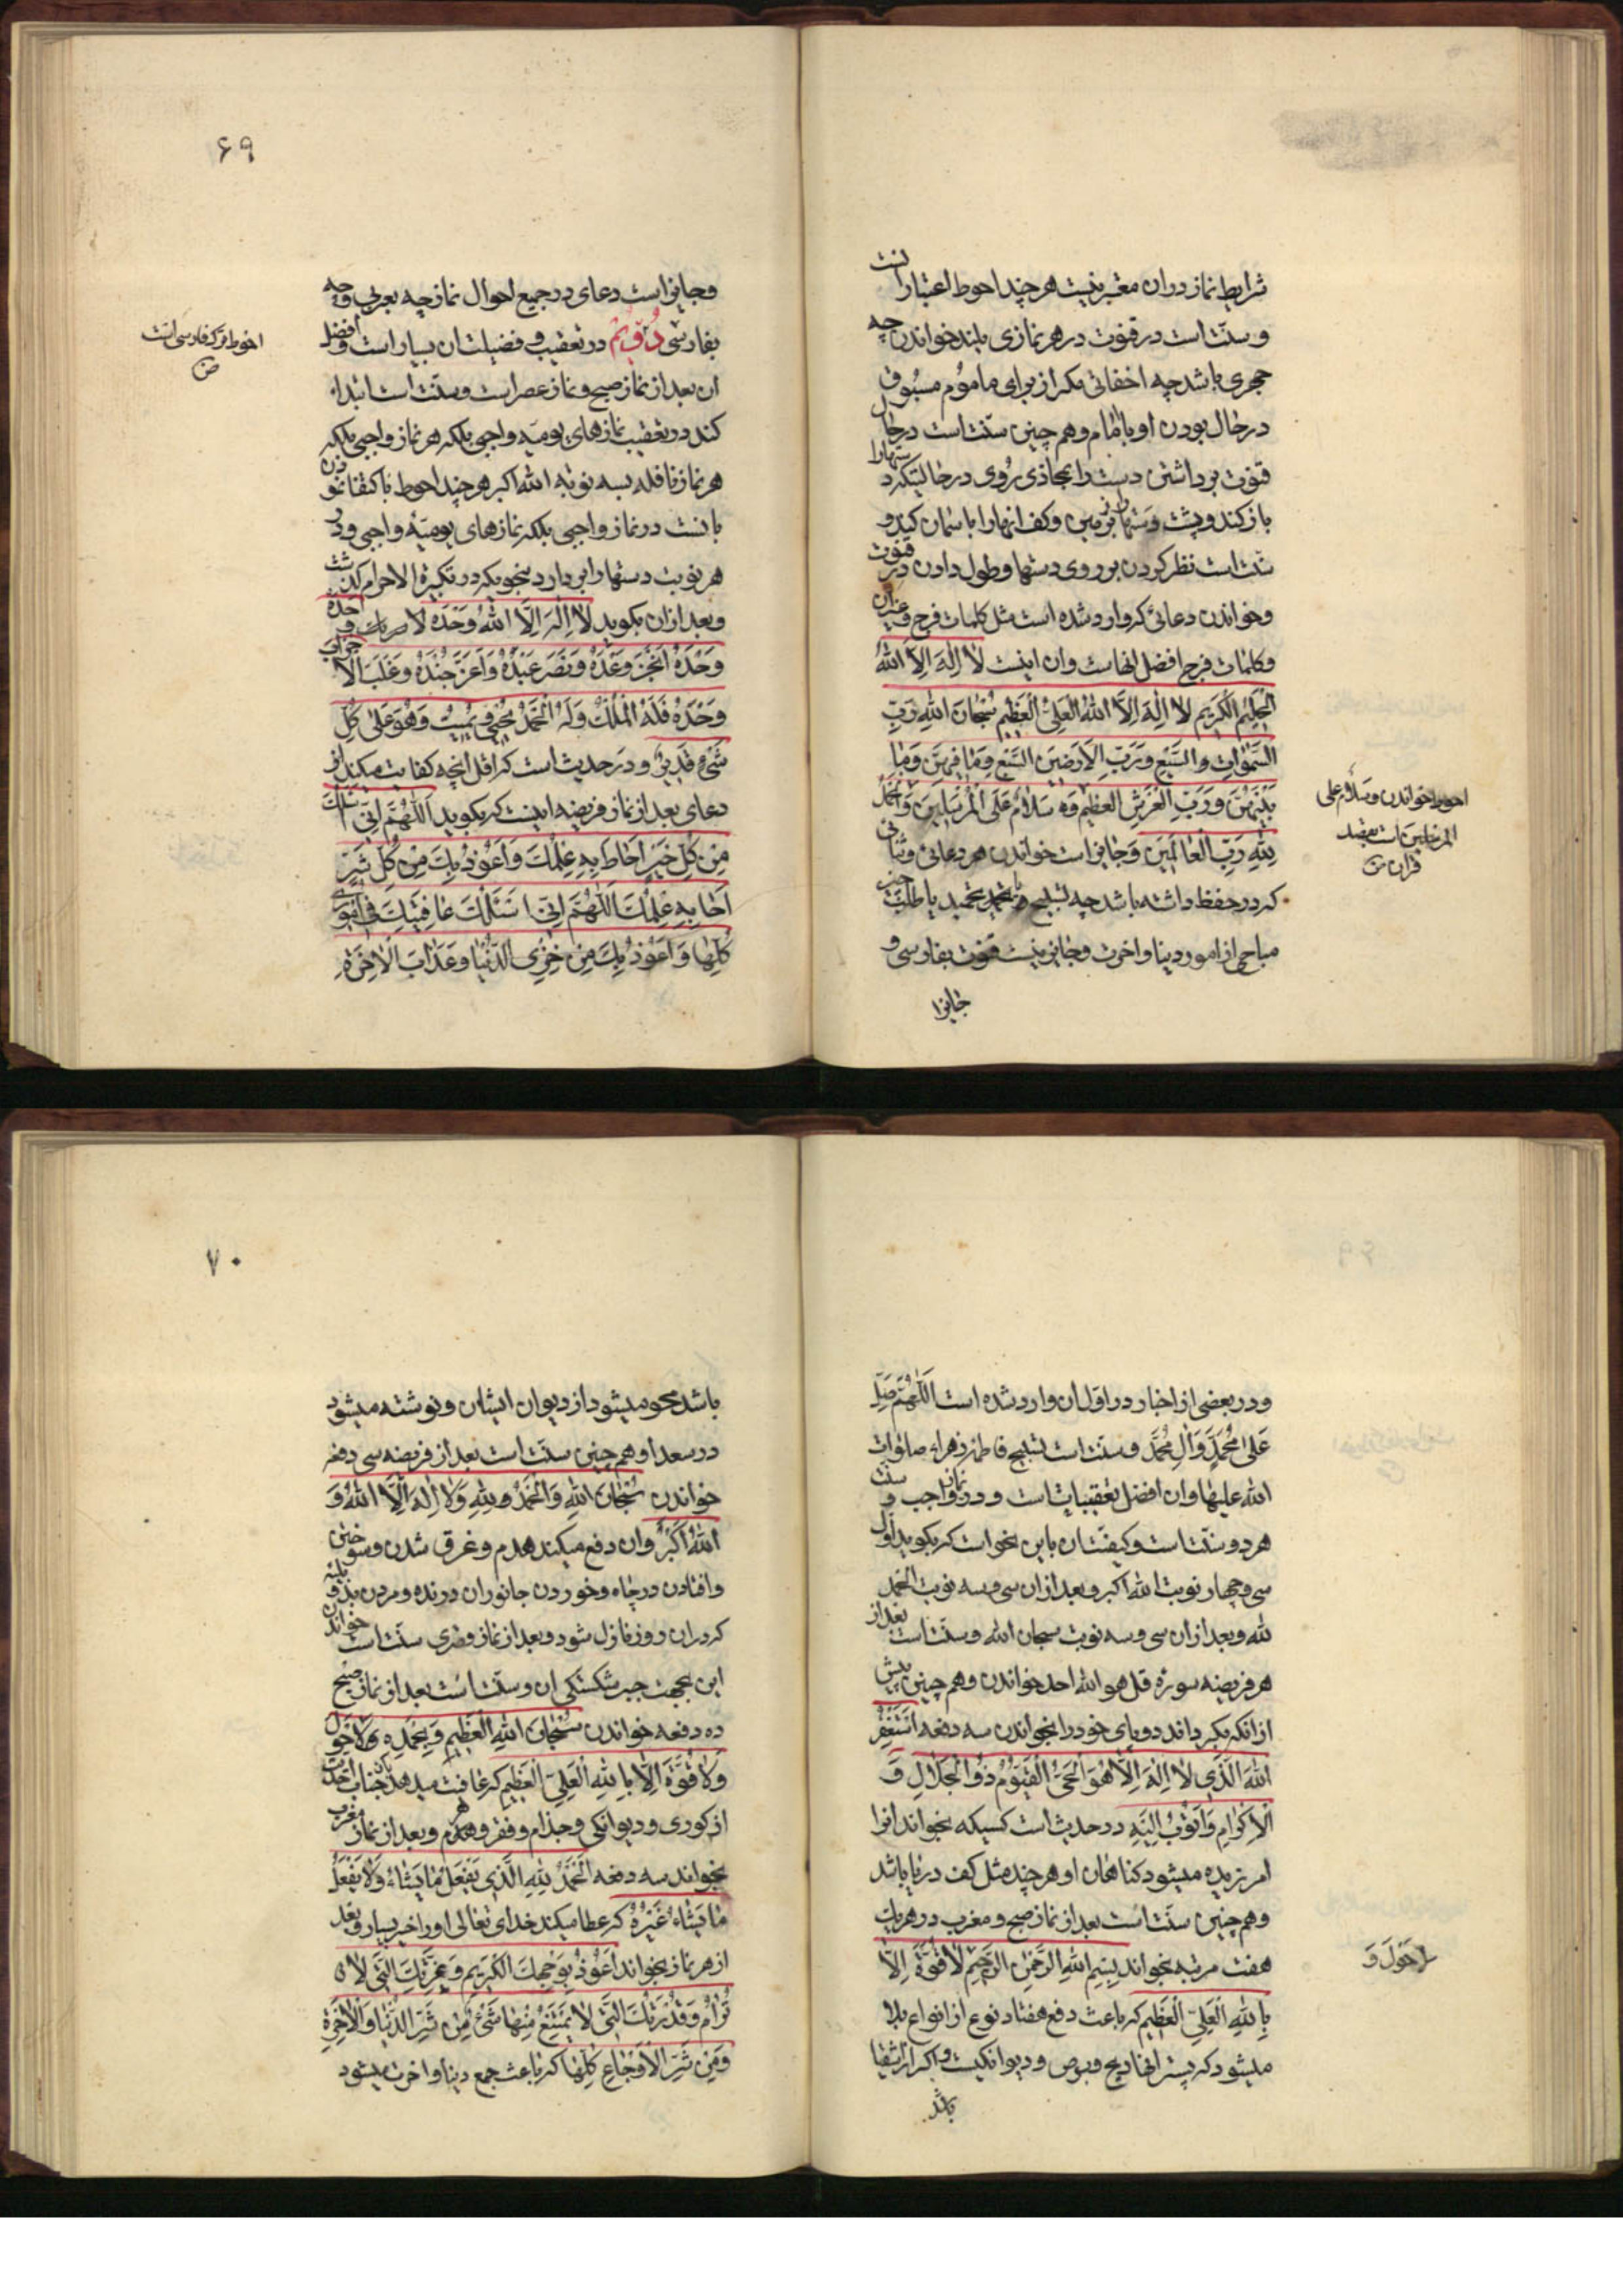 شرایط نماز در ان معتبر نیست هر چند احوط اعتبار انست
و سنّت است در قنوت در هر نمازی بلند خواندن چه
جهری باشد چه اخفاتی مکر از برای ماموُم مسبُوق
در حال بودن او با امام و هم چنین سنّت است در حال
قنوت برداشتن دست را بمحاذی رُوی در حالتیکه دستها را
باز کند و پشت دستها بر زمین و کف انها را باسمان کند و
سنّت است نظر کردن بر روی دستها و طول دادن در قنوت
و خواندن دعائی که وارد شده است مثل کلمات فرج و غیر ان
و کلمات فرج افضل انهاست و ان اینست لا اِلٰهَ اِلاَّ اللهُ
الْحَلِیْمُ الْکَرِیْمِ لا اِلٰهَ اِلاَّ اللهُ الْعَلِیُّ الْعَظِیْمِ سُبْحانَ اللهِ رَبِّ
السَّمٰوٰاتِ و السَّبْعِ وَ رَبِّ الاَرَضینَ السَّبْعِ وَ مٰا فِیْهِنَّ وَ مٰا
بَیْنَهُنَّ وَ رَبِّ الْعَرْشِ الْعَظِیْمْ وَ سَلامٌ عَلَی الْمُرْسَلِینَ وَ الْحَمْدُ
لِلّٰهِ رَبِّ الْعالَمینَ وَ جایز است خواندن هر دعائی و ثنائی
که در حفظ داشته باشد چه تسبیح و تحمید یا طلب چیز
مباحی از امور دنیا و اخرت و جایز نیست قنوت بفارسی و
جایز ا
احوط نخواندن وَ سَلامٌ علی
المرسلین است بقصد
قران ص
۶۹
و جایز است دعای در جمیع احوال نماز چه بعربی و چه
بفارسی دُوّیُم در تعقیب و فضیلت ان بسیار است و افضل
ان بعد از نماز صبح و نماز عصر است و سنّت است ابتداء
کند در تعقیب نمازهای یومیّه واجبی بلکه هر نماز واجبی بلکه
هر نماز نافله بسه نوبه الله اکبر هر چند احوط اکتفا نمودن
بانست در نماز واجبی بلکه نمازهای یومیّه واجبی و در
هر نوبت دستها را بر دارد بنحویکه در تکبیرة الاحرام کذشت
و بعد از ان بکوید لا اِلٰهَ اِلَّا اللهُ وَحْدَهُ لا شریک وَحْدَهُ
وَحْدَهُ اَنْجَزَ وَعْدَهُ وَ نَصَرَ عَبْدَهُ وَ اَعَزَّ جُنْدَهُ وَ غَلَبَ الاَحْزابَ
وَحْدَهُ فَلَهُ الْمُلْکُ وَ لَهُ الْحَمْدُ یُحْیِی وَ یُمیتُ وَ هُوَ عَلٰی کُلِّ
شَیْءٍ قَدیرٌ و در حدیث است که اقل انچه کفایت میکند از
دعای بعد از نماز فریضه اینست که بکوید اَللّٰهُمَّ اِنّی اَسْئَلُکَ
مِنْ کُلِّ خَیْرٍ اَحاطَ بِهِ عِلْمُکَ وَ اَعُوذُ بِکَ مِنْ کُلِّ شَرٍّ
اَحاطَ بِهِ عِلْمُکَ اَللّٰهُمَّ اِنّی اَسْئَلُکَ عافِیَتَکَ فی اُمُوری
کُلِّها وَ اَعُوذُ بِکَ مِنْ خِزْیِ الدُّنْیا وَ عَذابَ الاٰخِرَةِ
احوط ترک فارسی است
ص
و در بعضی از اخبار در اوّل ان وارد شده است اَللّٰهُمَّ صَلِّ
عَلیٰ مُحَمَّدٍ وَ آلِ مُحَمَّدٍ و سنّت است تسبیح فاطمه زهراء صلوات
الله علیها و ان افضل تعقیبات است و در نماز واجب و سنت
هر دو سنّت است و کیفیّت ان باین نحو است که بکوید اول
سی و چهار نوبت الله اکبر و بعد از ان سی و سه نوبت الحَمد
لله و بعد از ان سی و سه نوبت سبحان الله و سنّت است بعد از
هر فریضه سورۀ قل هو الله احد خواندن و هم چنین پیش
از انکه بکرداند دو پای خود را بخواندن سه دفعه اَسْتَغْفِرُ
اللهَ الَّذی لا اِلٰهَ اِلاَّ هُوَ الْحَیُّ الْقَیُّومُ ذُو الْجَلالِ وَ
الاِکْرامِ وَ اَتُوبُ اِلَیْهِ در حدیث است کسیکه بخواند انرا
امرزیده میشود کناهان او هر چند مثل کف دریا باشد
و هم چنین سنّت است بعد از نماز صبح و مغرب در هر یک
هفت مرتبه بخواند بِسْمِ اللهِ الرَّحْمٰنِ الرَّحیْمِ لا قُوَّةَ اِلاَّ
بِاللهِ الْعَلِیِّ الْعَظیْمِ که باعث دفع هفتاد نوع از انواع بلا
میشود که پستر انها ریح و برص و دیوانکیست و اکر از اشقیا
باشد
لا حَوْلَ وَ
۷۰
باشد محو میشود از دیوان اشقیا و نوشته میشود
در سعداء و هم چنین سنّت است بعد از فریضه سی دفعه
خواندن سُبْحانَ اللهِ وَ الْحَمْدُ لِلّٰهِ وَ لا اِلٰهَ اِلَّا اللهُ وَ
اللهُ اَکْبَرُ و ان دفع میکند هدم و غرق شدن و سوختن
و افتادن در چاه و خوردن جانوران درنده و مردن بد و بلیّه
که در ان روز نازل شود و بعد از نماز سنّت است خواندن
این بجهت جبر شکستکی ان و سنّت است بعد از نماز صبح
ده دفعه خواندن سُبْحانَ اللهِ الْعَظیمِ وَ بِحَمْدِهِ وَ لا حَوْلَ
وَ لا قُوَّةَ اِلاَّ بِاللهِ الْعَلِیِّ الْعَظیْمِ که عافیت میدهد بان جناب احدیت
از کوری و دیوانکی و جذام و فقر و هدم و بعد از نماز مغرب
بخواند سه دفعه اَلْحَمْدُ لِلّٰهِ الَّذی یَفْعَلُ ما یَشاءُ وَ لا یَفْعَلُ
ما یَشاءُ غَیْرُهُ که عطا میکند خدای تعالی او را خیر بسیار و بعد
از هر نماز بخواند اَعُوذُ بِوَجْهِکَ الْکَرِیمِ وَ عِزَّتِکَ الَّتی لا
تُرامُ وَ قُدْرَتِکَ الَّتی لا یَمْتَنِعُ مِنْها شَیْءٌ مِنْ شَرِّ الدُّنْیا وَ الاٰخِرَةِ
وَ مِنْ شَرِّ الاَوْجاعِ کُلِّها که باعث جمع دنیا و اخرت میشود